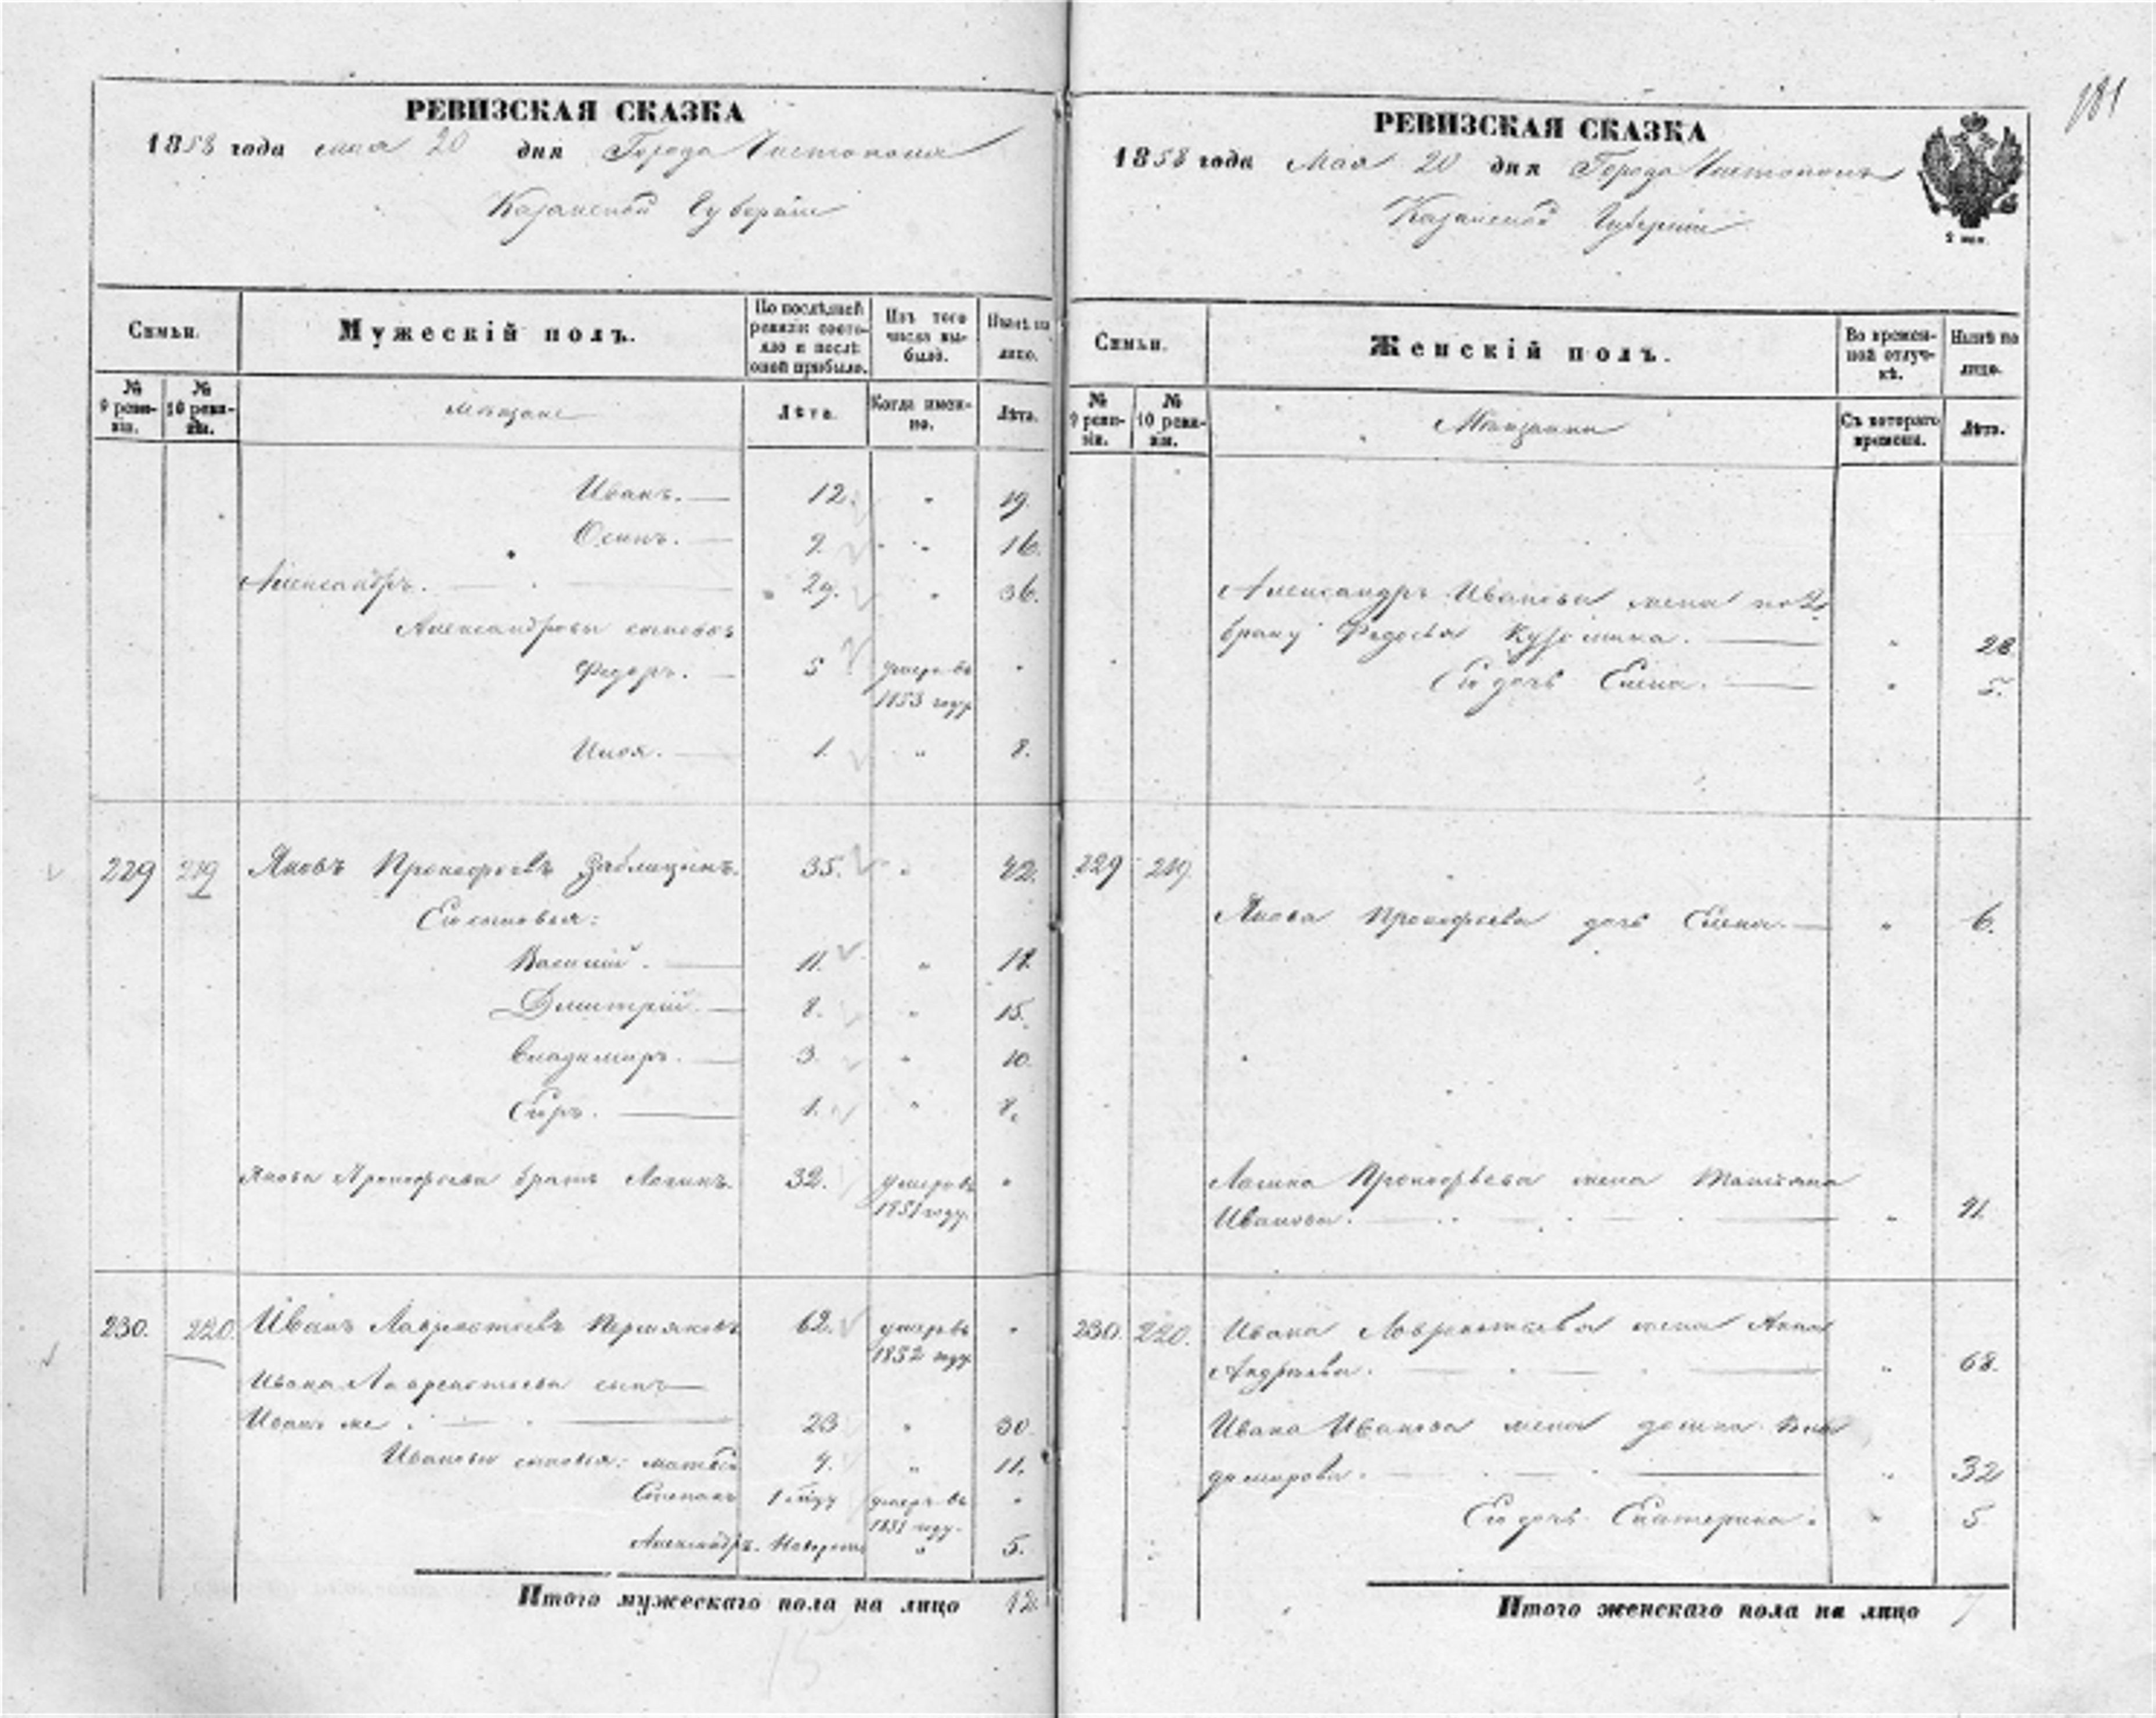 181
РЕВИЗСКАЯ СКАЗКА
1858 года мая 20 дня Города Чистополя
Казанской Губерніи
Семьи.
Мужескій полъ.
По послѣдней ревизіи состояло и послѣ оной прибыло.
Изъ того числа выбыло.
Нынѣ на лицо.
№ 9 ревизіи.
№ 10 ревизіи.
мѣщане
Лѣта.
Когда именно.
Лѣта.
Иванъ. 12. " 19.
Осипъ. 9. " 16.
Александръ. 29. " 36.
Александровы сыновья
Федоръ. 5 умеръ въ
1853 году
Илья. 1. " 8.
229 219 Яковъ Прокофьевъ 35. " 42.
Его сыновья:
Василій. 11. " 18.
Дмитрій. 8. " 15.
Владимиръ. 3. " 10.
Киръ. 1. " 8.
Якова Прокофьева братъ Логинъ. 32. умеръ въ "
1851 году.
230. 220 Иванъ Лаврентьевъ Пермяковъ 62. умеръ въ "
1852 году
Ивана Лаврентьева сынъ
Иванъ же. 23 " 30
Ивановы сыновья: Матвей 4. " 11.
Степанъ 1 году умеръ въ "
1851 году.
Александръ. Новорож. " 5.
Итого мужескаго пола на лицо 12.
15
РЕВИЗСКАЯ СКАЗКА
1858 года Мая 20 дня Города Чистополя
Казанской Губерніи
Семьи.
Женскій полъ.
Во временной отлучкѣ.
Нынѣ на лицо.
№ 9 ревизіи.
№ 10 ревизіи.
Мѣщанки
Съ котораго времени.
Лѣта.
Александръ Иванова жена по 2
браку Федосья Кузьмина. " 28.
Его дочь Елена. " 5.
229 219.
Якова Прокофьева дочь Елена. " 6.
Логина Прокофьева жена Татьяна
Иванова. " 41.
230. 220. Ивана Лаврентьева жена Анна
Андреева. " 68.
Ивана Иванова жена
" 32
Его дочь Екатерина. " 5
Итого женскаго пола на лицо 7